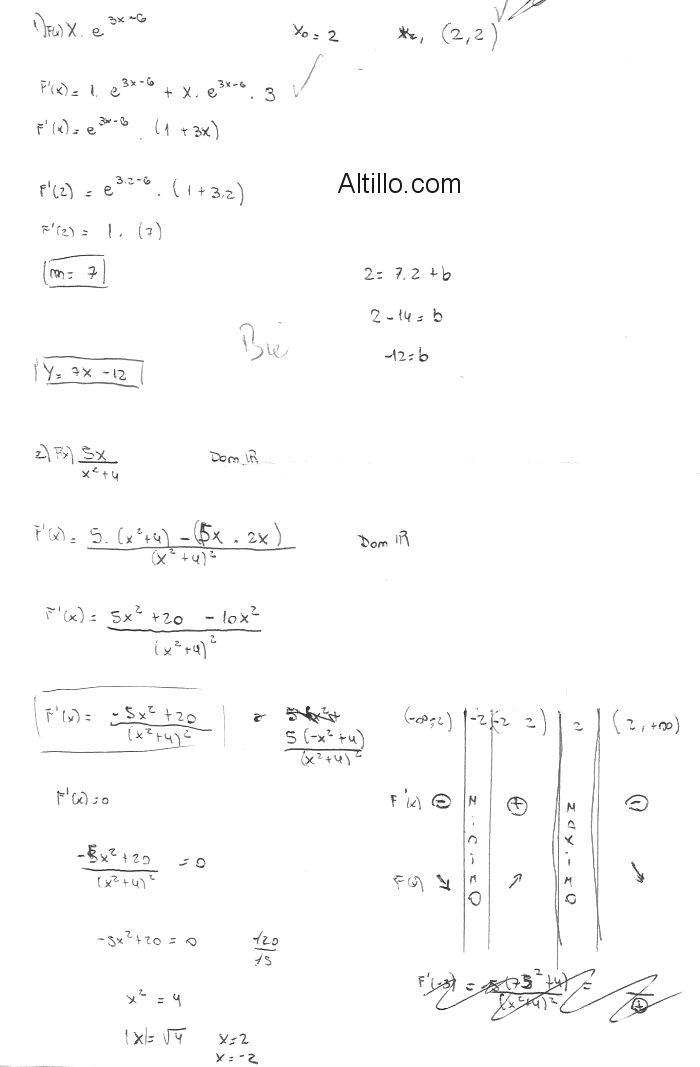 1) F(x) X . e^(3x-6)    x₀ = 2    (2,2)
F'(x) = 1 . e^(3x-6) + x . e^(3x-6) . 3
F'(x) = e^(3x-6) . (1 + 3x)
F'(2) = e^(3.2-6) . (1 + 3.2)    Altillo.com
F'(2) = 1 . (7)
m = 7    2 = 7.2 + b
2 - 14 = b
-12 = b
Y = 7x - 12
2) F(x) 5x/(x²+4)    Dom IR
F'(x) = (5 . (x²+4) - (5x . 2x))/(x²+4)²    Dom IR
F'(x) = (5x² + 20 - 10x²)/(x²+4)²
F'(x) = (-5x² + 20)/(x²+4)² = 5(-x²+4)/(x²+4)²    (-∞;2) | -2 | (-2 2) | 2 | (2, +∞)
F'(x)=0    F'(x) ⊖ MINIMO ⊕ MAXIMO ⊖
(-5x² + 20)/(x²+4)² = 0    F(x) ↘ ↗ ↘
-5x² + 20 = 0    -20/-5
x² = 4
|x| = √4    x = 2
x = -2